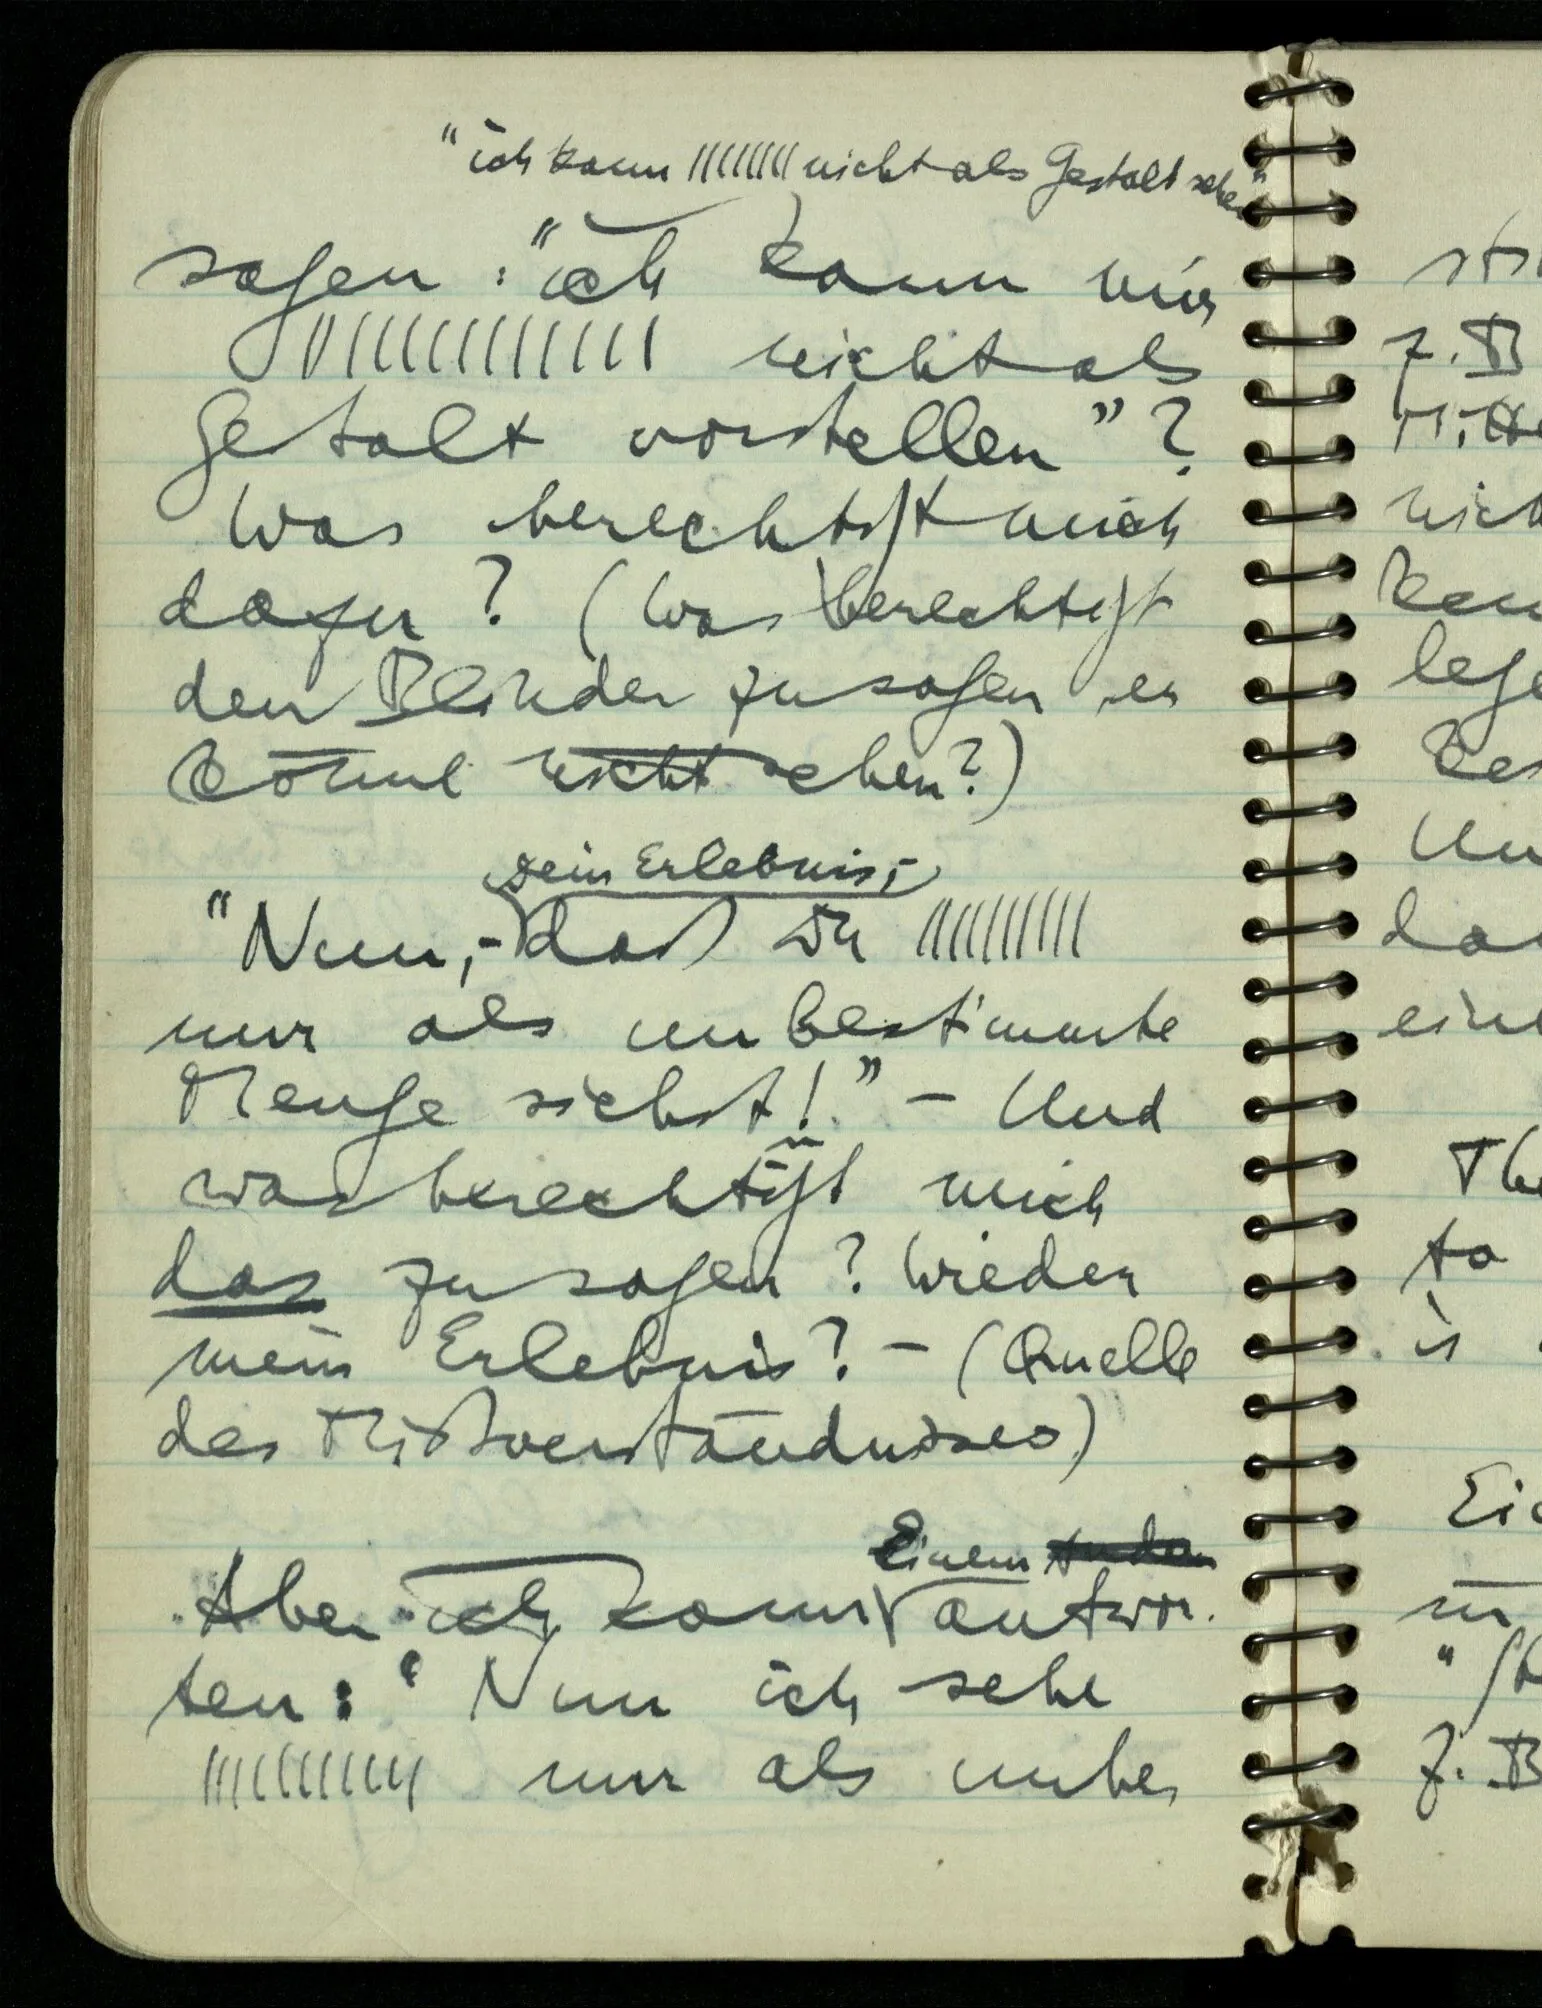 "ich kann |||||||| nicht als Gestalt sehen"
sagen: "ich kann mir
||||||||||||| nicht als
Gestalt vorstellen"?
Was berechtigt mich
dazu? (Was berechtigt
den Blinden zu sagen er
könne nicht sehen?)
sein Erlebnis,-
"Nun,- daß Du ||||||||||
nur als unbestimmte
Menge siehst!" – Und
was berechtigt mich
das zu sagen? Wieder
mein Erlebnis? – (Quelle
des Mißverständnisses)
Einem
Aber ich kann antwor-
ten: "Nun ich sehe
|||||||||| nur als unbe-
z. B
nich
lege
Un
da
eine
to
is
Eic
z. B